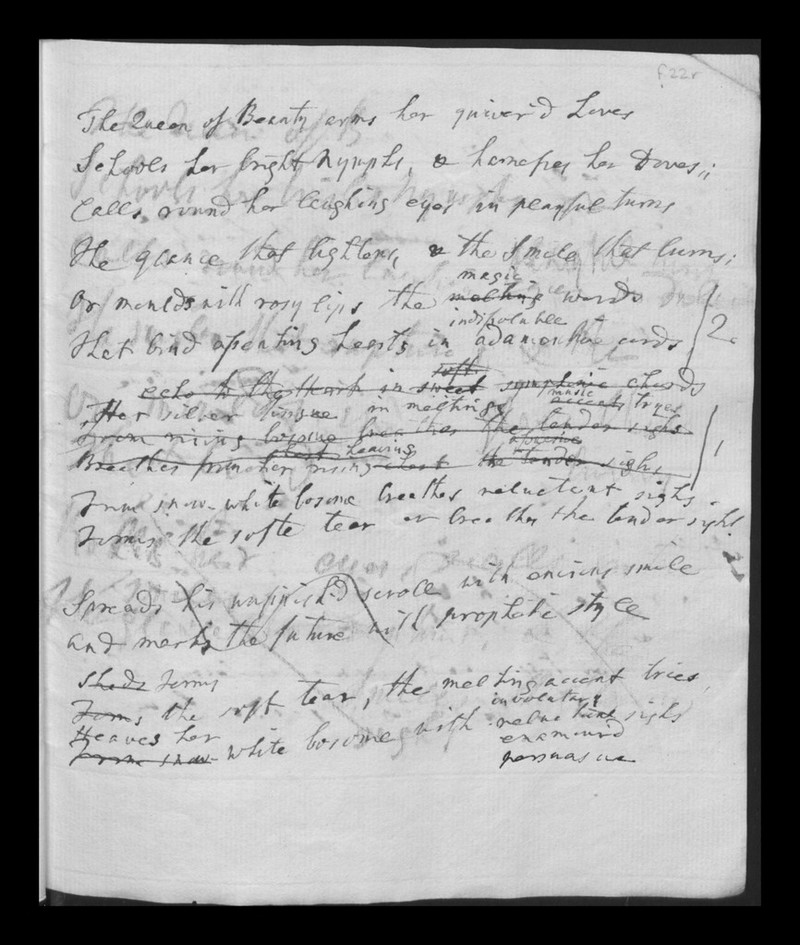 f.22r
The Queen of Beauty arms her quiver'd Loves
Schools her bright Nymphs, & harnesses her Doves;
Calls round her laughing eyes in playful turns
The glance that lightens, & the smile that burns;
magic
Or moulds with rosy lips the melting words
indissoluble
That bind assenting hearts in adamantine cords 2.
soft
echo to the Heart in sweet symphonic chords
music
Her silver tongue in melting accents tryes
From rising bosome breathes the tender sighs 1
chest heaving
Breathes from her rising chest the tender sighs
From snow-white bosome breathes reluctant sighs
Forms the softe tear or breathes the tender sigh!
Spreads his unfinish'd scroll with enticing smile
And marks the future with prophetic style
Sheds Forms
Forms the soft tear, the melting accent tries,
involuntary
Heaves her white bosome with reluctant sighs
From snow-
enamour'd
persuasive